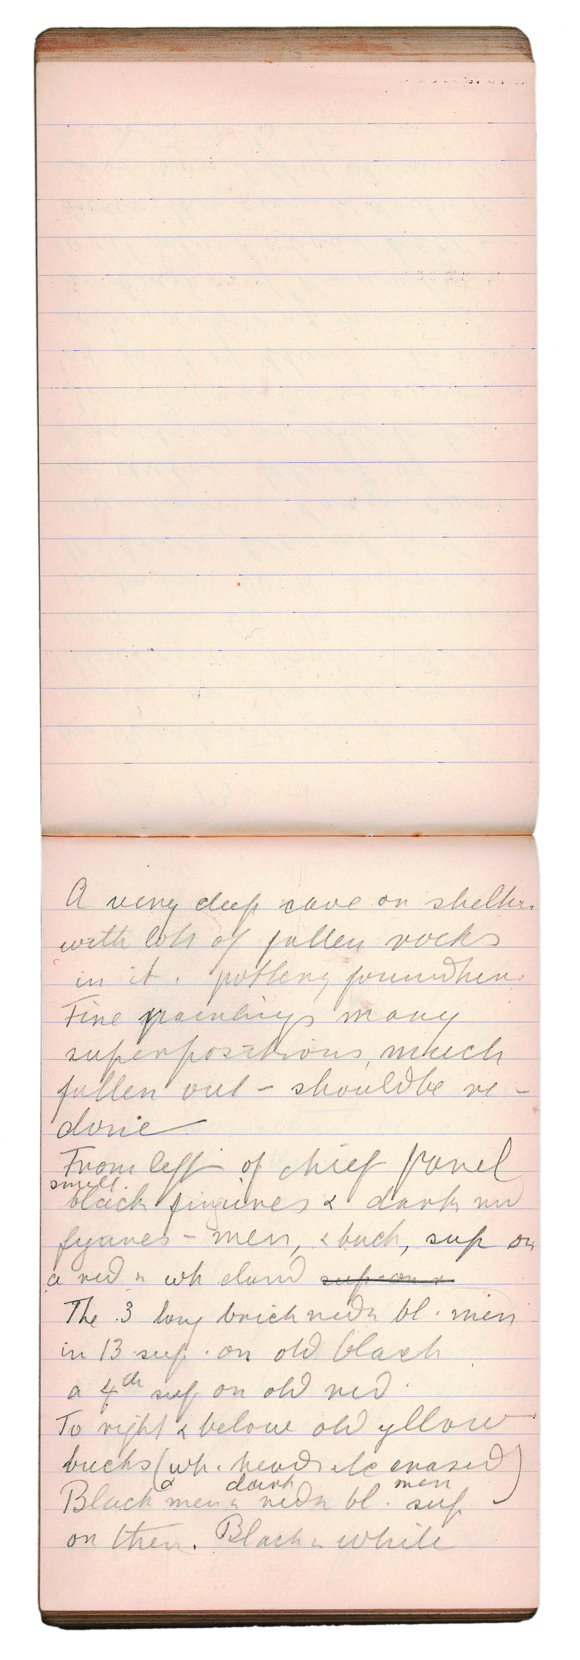 A very deep cave or shelter
with lots of fallen rocks
in it. pottery found here.
Fine paintings many
superpositions, much
fallen out - should be re-
done
From left of chief panel
small
black figures & dark red
figures - men, & buck, sup on
a red & wh eland sup on a
The 3 long brick red & bl. men
in 13 sup. on old black
a 4th sup on old red.
To right & below old yellow
bucks (wh. heads etc erased)
dark men
Black men & red & bl. sup
on them. Black & white